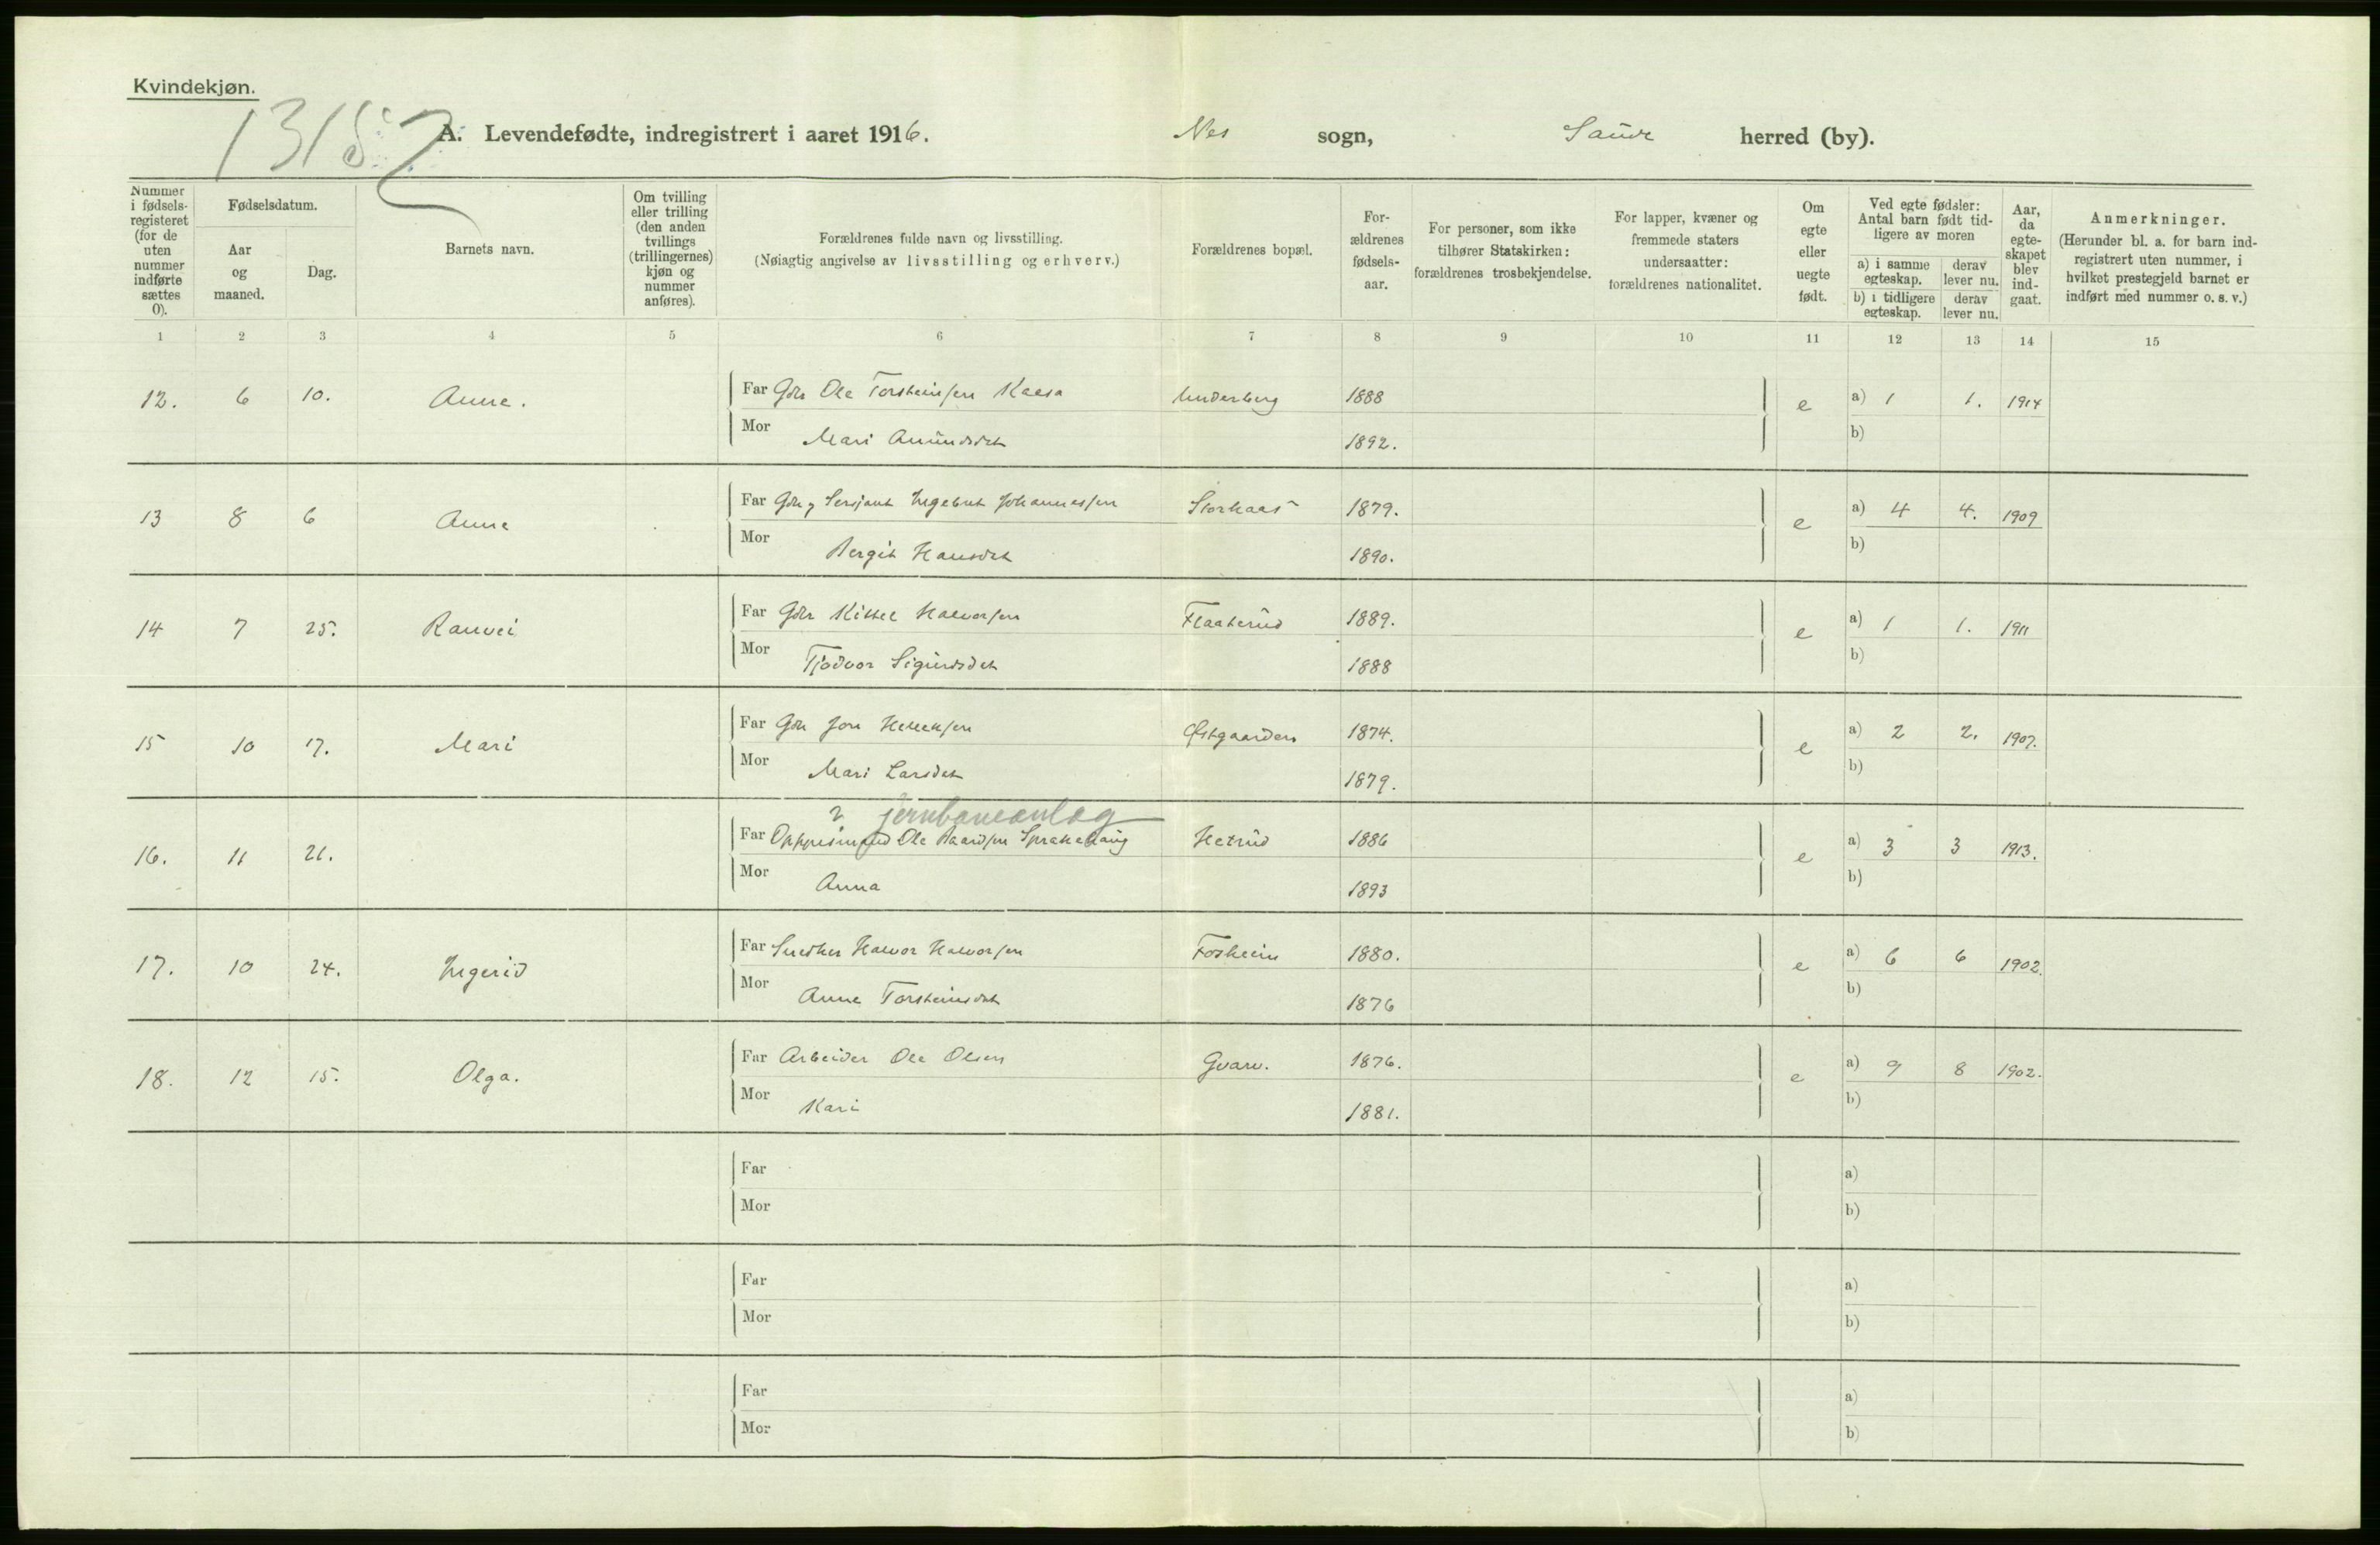 Kvindekjøn.
A. Levendefødte, indregistrert i aaret 1916. Nes sogn, Saude herred (by).
Nummer i fødsels-registeret (for de uten nummer indførte sættes 0).
Fødselsdatum.
Aar og maaned.
Dag.
Barnets navn.
Om tvilling eller trilling (den anden tvillings (trillingernes) kjøn og nummer anføres).
Forældrenes fulde navn og livsstilling.
(Nøiagtig angivelse av livsstilling og erhverv.)
Forældrenes bopæl.
For-ældrenes fødsels-aar.
For personer, som ikke tilhører Statskirken: forældrenes trosbekjendelse.
For lapper, kvæner og fremmede staters undersaatter: forældrenes nationalitet.
Om egte eller uegte født.
Ved egte fødsler: Antal barn født tid-ligere av moren
a) i samme egteskap. derav lever nu.
b) i tidligere egteskap. derav lever nu.
Aar, da egte-skapet blev ind-gaat.
Anmerkninger.
(Herunder bl. a. for barn ind-registrert uten nummer, i hvilket prestegjeld barnet er indført med nummer o. s. v.)
1 2 3 4 5 6 7 8 9 10 11 12 13 14 15
12. 6 10. Anne. Far Gbr Ole Torsteinsen Kaasa Underberg 1888 e a) 1 1. 1914
Mor Mari Amundsdat 1892. b)
13 8 6 Anne Far Gbr, Sersjant Ingebret Johannessen Storkaas 1879. e a) 4 4. 1909
Mor Bergit Hansdat 1890. b)
14 7 25. Ranvei Far Gbr Kittel Halvorsen Flaaterud 1889. e a) 1 1. 1911
Mor Tjodvor Sigurdsdat 1888 b)
15 10 17. Mari Far Gbr Jon Helleksen Østgaarden 1874. e a) 2 2. 1907.
Mor Mari Larsdat 1879. b)
v jernbaneanlæg
16. 11 21. Far Opps­mand Ole Baardsen Hetrud 1886 e a) 3 3 1913.
Mor Anna 1893 b)
17. 10 24. Ingerid Far Snedker Halvor Halvorsen Fosheim 1880. e a) 6 6 1902.
Mor Anne Torsteinsdat 1876 b)
18. 12 15. Olga. Far Arbeider Ole Olsen Gvarv. 1876. e a) 9 8 1902.
Mor Kari 1881. b)
Far a)
Mor b)
Far a)
Mor b)
Far a)
Mor b)